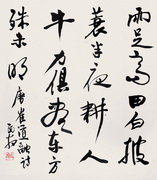 雨足高田白披
蓑半夜耕人
牛力俱盡東方
殊未明
唐崔道融詩